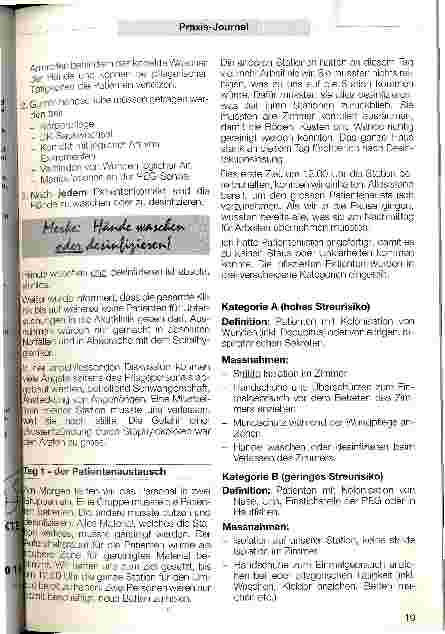 Praxis-Journal
behindern das korrekte Waschen
der Hände und können bei pflegerischen
Tätigkeiten die Patienten verletzen.
müssen getragen wer-
den bei:
– Körperpflege
– DK-Sackwechsel
– Kontakt mit jeglicher Art von
Exkrementen
– Verbinden von Wunden jeglicher Art
– Manipulationen an der PEG-Sonde
3. Nach jedem Patientenkontakt sind die
Hände zu waschen oder zu desinfizieren.
Merke: Hände waschen
oder desinfizieren!
Hände waschen und desinfizieren ist absolut
Weiter wurde informiert, dass die gesamte Kli-
nik bis auf weiteres keine Patienten für Unter-
suchungen in die Akutklinik geben darf. Aus-
nahmen würden nur gemacht in absoluten
Notfällen und in Absprache mit dem Spitalhy-
gieniker.
In der anschliessenden Diskussion konnten
viele Ängste seitens des Pflegepersonals ab-
gebaut werden, betreffend Schwangerschaft,
Ansteckung von Angehörigen. Eine Mitarbei-
terin meiner Station musste uns verlassen,
weil sie noch stillte. Die Gefahr einer
Brustentzündung durch Staphylokokken war
den Ärzten zu gross.
Tag 1 - der Patientenaustausch
Am Morgen teilten wir das Personal in zwei
Gruppen ein. Eine Gruppe musste die Patien-
ten betreuen. Die andere musste putzen und
desinfizieren. Alles Material, welches die Sta-
tion verliess, musste gereinigt werden. Der
Aufenthaltsraum für die Patienten wurde als
saubere Zone für gereinigtes Material be-
nutzt. Wir hatten uns zum Ziel gesetzt, bis
um 12.00 Uhr die ganze Station für den Um-
zug bereit zu haben. Zwei Personen waren nur
damit beschäftigt, neue Betten zu holen.
Die anderen Stationen hatten an diesem Tag
viel mehr Arbeit als wir. Sie mussten nichts rei-
nigen, was zu uns auf die Station kommen
würde. Dafür mussten sie alles desinfizieren,
was auf ihren Stationen zurückblieb. Sie
mussten alle Zimmer komplett ausräumen,
damit die Böden, Kästen und Wände richtig
gereinigt werden konnten. Das ganze Haus
stank an diesem Tag fürchterlich nach Desin-
fektionslösung.
Das erste Ziel, um 12.00 Uhr die Station be-
reitzuhalten, konnten wir einhalten. Alles stand
bereit, um den grossen Patientenaustausch
vorzunehmen. Als wir in die Pause gingen,
wussten bereits alle, was sie am Nachmittag
für Arbeiten übernehmen mussten.
Ich hatte Patientenlisten angefertigt, damit es
zu keinen Staus oder Unklarheiten kommen
konnte. Die infizierten Patienten wurden in
drei verschiedene Kategorien eingeteilt.
Kategorie A (hohes Streurisiko)
Definition: Patienten mit Kolonisation von
Wunden (inkl. Decubitus) oder von eitrigen, re-
spiratorischen Sekreten.
Massnahmen:
– Strikte Isolation im Zimmer
– Handschuhe und Überschürzen zum Ein-
malgebrauch vor dem Betreten des Zim-
mers anziehen
– Mundschutz während der Wundpflege an-
ziehen
– Hände waschen oder desinfizieren beim
Verlassen des Zimmers
Kategorie B (geringes Streurisiko)
Definition: Patienten mit Kolonisation von
Nase, Urin, Einstichstelle der PEG oder in
Hautfalten.
Massnahmen:
– Isolation auf unserer Station, keine strikte
Isolation im Zimmer
– Handschuhe zum Einmalgebrauch anzie-
hen bei jeder pflegerischen Tätigkeit (inkl.
Waschen, Kleider anziehen, Betten ma-
chen etc.)
19